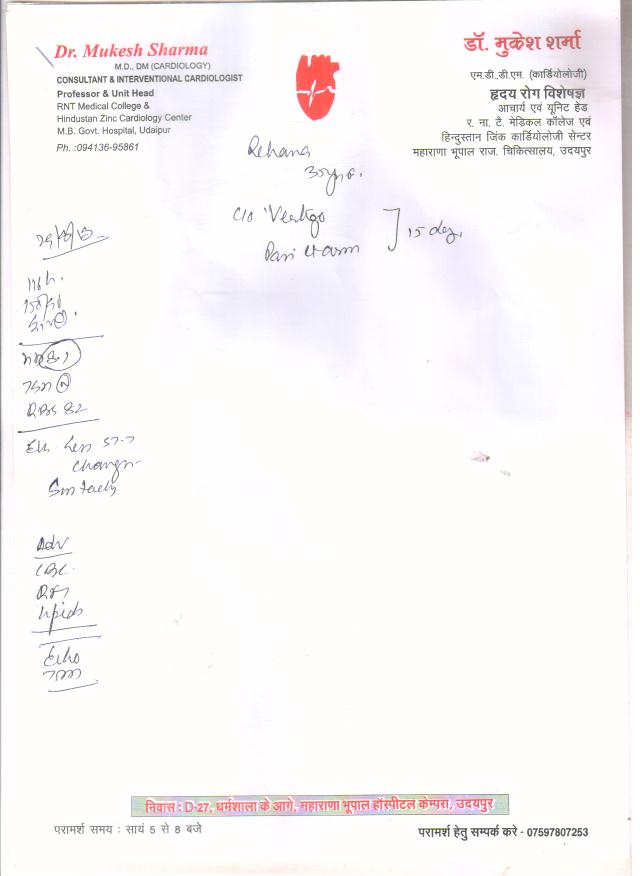 Dr. Mukesh Sharma
M.D., DM (CARDIOLOGY)
CONSULTANT & INTERVENTIONAL CARDIOLOGIST
Professor & Unit Head
RNT Medical College &
Hindustan Zinc Cardiology Center
M.B. Govt. Hospital, Udaipur
Ph. :094136-95861
डॉ. मुकेश शर्मा
एम.डी.डी.एम. (कार्डियोलोजी)
हृदय रोग विशेषज्ञ
आचार्य एवं यूनिट हेड
र. ना. टै. मेडिकल कॉलेज एवं
हिन्दुस्तान जिंक कार्डियोलोजी सेन्टर
महाराणा भूपाल राज. चिकित्सालय, उदयपुर
Rehana
30yrs.
C/o Vertigo
Pain
15 days
RBS 82
ST-T
Changes
Adv
CBC.
RFT
Lipids
Echo
TMT
निवास : D-27, धर्मशाला के आगे, महाराणा भूपाल हॉस्पीटल केम्पस, उदयपुर
परामर्श समय : सायं 5 से 8 बजे
परामर्श हेतु सम्पर्क करे - 07597807253